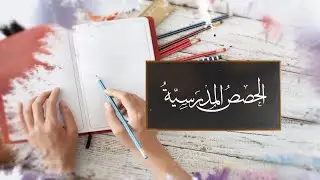 الحصصُ المدرَسِيَّةُ